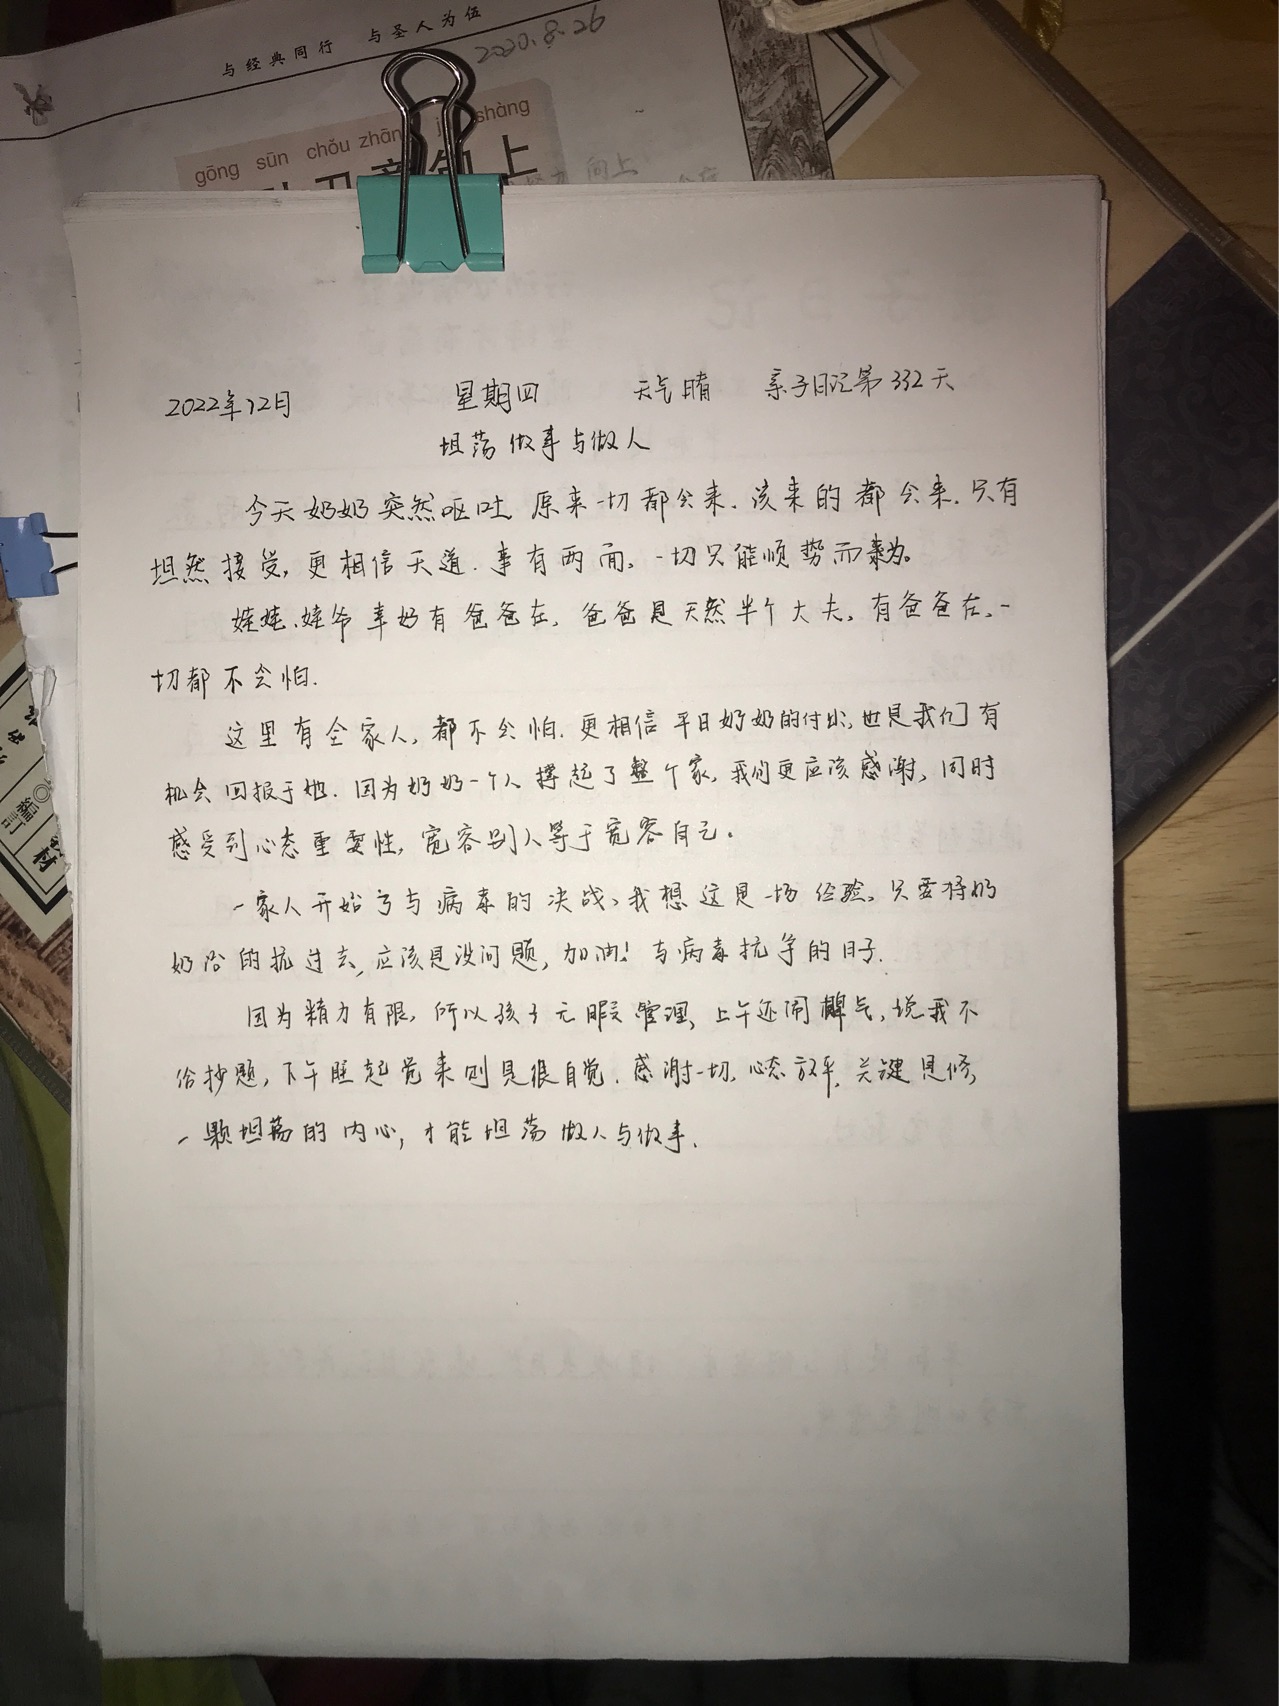 与经典同行 与圣人为伍
2020.8.26
gōng sūn chǒu zhāng shàng
2022年12月 星期四 天气晴 亲子日记第332天
坦荡做事与做人
今天奶奶突然呕吐 原来一切都会来.该来的都会来.只有
坦然接受,更相信天道.事有两面,一切只能顺势而为。
娃娃、娃爷幸好有爸爸在,爸爸是天然半个大夫,有爸爸在,一
切都不会怕.
这里有全家人,都不会怕.更相信平日奶奶的付出,也是我们有
机会回报于她.因为奶奶一个人撑起了整个家,我们更应该感谢,同时
感受到心态重要性,宽容别人等于宽容自己。
一家人开始了与病毒的决战,我想这是一场经验,只要将奶
奶的抗过去,应该是没问题,加油!与病毒抗争的日子.
因为精力有限,所以孩子无暇管理,上午还闹脾气,说我不
给抄题,下午睡起觉来则是很自觉.感谢一切.心态放平,关键是修
一颗坦荡的内心,才能坦荡做人与做事.
編訂
材